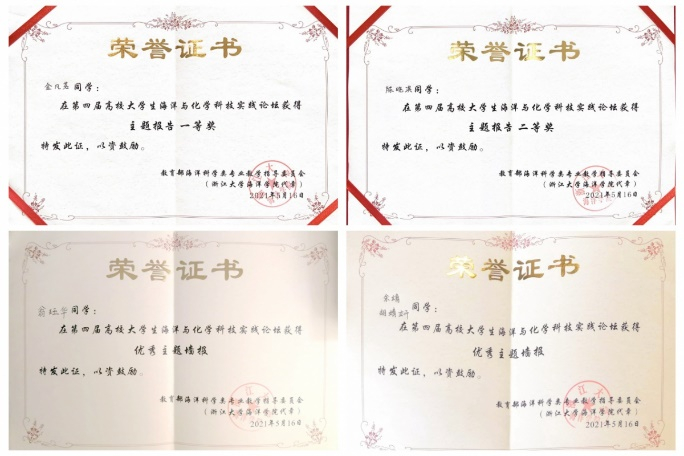 荣誉证书
同学：
在第四届高校大学生海洋与化学科技实践论坛获得
主题报告 一等奖
特发此证，以资鼓励。
教育部海洋科学类专业教学指导委员会
（浙江大学海洋学院代章）
2021年5月16日
荣誉证书
陈晓淇同学：
在第四届高校大学生海洋与化学科技实践论坛获得
主题报告 二等奖
特发此证，以资鼓励。
教育部海洋科学类专业教学指导委员会
（浙江大学海洋学院代章）
2021年5月16日
荣誉证书
同学：
在第四届高校大学生海洋与化学科技实践论坛获得
优秀主题墙报
特发此证，以资鼓励。
教育部海洋科学类专业教学指导委员会
（浙江大学海洋学院代章）
2021年5月16日
荣誉证书
同学：
在第四届高校大学生海洋与化学科技实践论坛获得
优秀主题墙报
特发此证，以资鼓励。
教育部海洋科学类专业教学指导委员会
（浙江大学海洋学院代章）
2021年5月16日